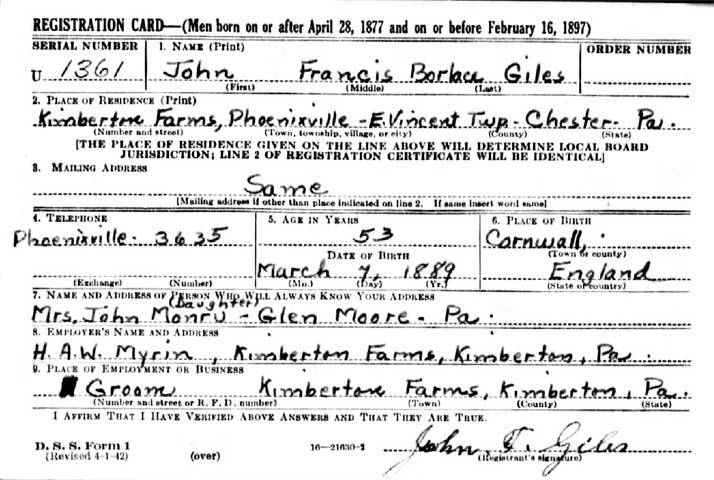 REGISTRATION CARD—(Men born on or after April 28, 1877 and on or before February 16, 1897)
SERIAL NUMBER 1. NAME (Print) ORDER NUMBER
U 1361 John Francis Borlace Giles
(First) (Middle) (Last)
2. PLACE OF RESIDENCE (Print)
Kimberton Farms, Phoenixville - E. Vincent Twp - Chester - Pa.
(Number and street) (Town, township, village, or city) (County) (State)
[THE PLACE OF RESIDENCE GIVEN ON THE LINE ABOVE WILL DETERMINE LOCAL BOARD
JURISDICTION; LINE 2 OF REGISTRATION CERTIFICATE WILL BE IDENTICAL]
3. MAILING ADDRESS
Same
[Mailing address if other than place indicated on line 2. If same insert word same]
4. TELEPHONE 5. AGE IN YEARS 6. PLACE OF BIRTH
Phoenixville - 3635 53 Cornwall,
DATE OF BIRTH (Town or county)
March 7, 1889 England
(Exchange) (Number) (Mo.) (Day) (Yr.) (State or country)
7. NAME AND ADDRESS OF PERSON WHO WILL ALWAYS KNOW YOUR ADDRESS
(Daughter)
Mrs. John Monru - Glen Moore - Pa.
8. EMPLOYER'S NAME AND ADDRESS
H. A. W. Myrin, Kimberton Farms, Kimberton, Pa.
9. PLACE OF EMPLOYMENT OR BUSINESS
Groom Kimberton Farms, Kimberton, Pa.
(Number and street or R. F. D. number) (Town) (County) (State)
I AFFIRM THAT I HAVE VERIFIED ABOVE ANSWERS AND THAT THEY ARE TRUE.
D. S. S. Form 1
(Revised 4-1-42) (over) 16—21630-2 John F. Giles
(Registrant's signature)